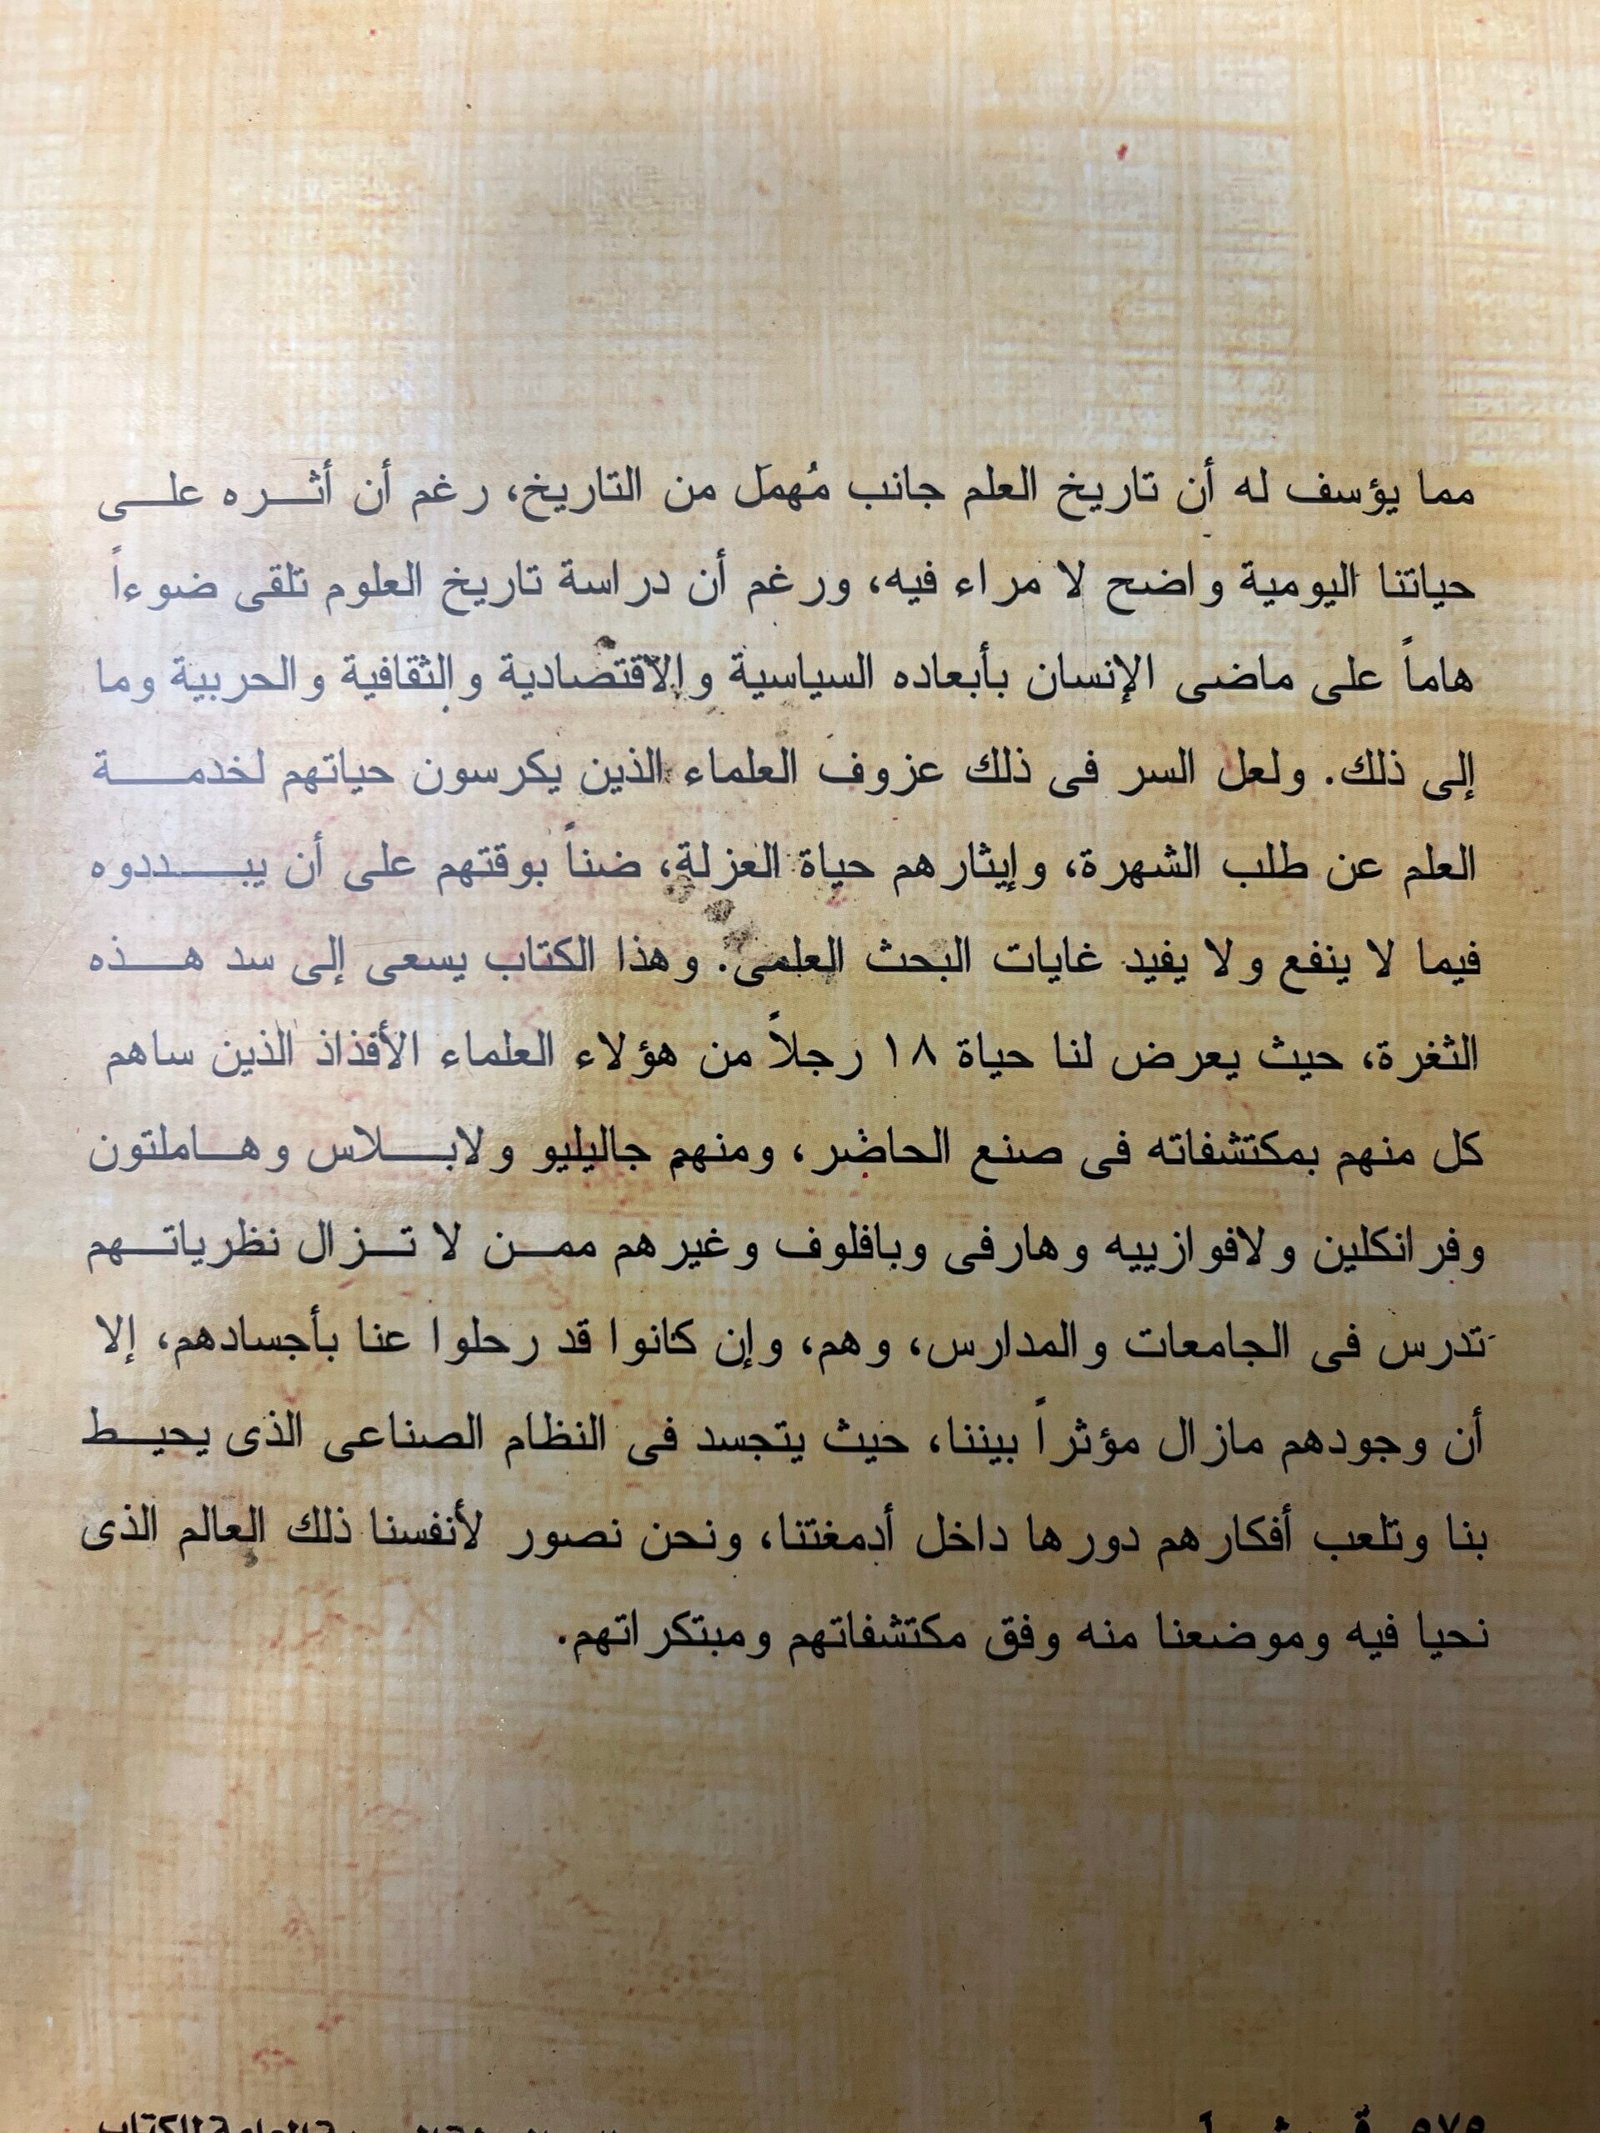 مما يؤسف له أن تاريخ العلم جانب مُهمَل من التاريخ، رغم أن أثره على
حياتنا اليومية واضح لا مراء فيه، ورغم أن دراسة تاريخ العلوم تلقى ضوءاً
هاماً على ماضى الإنسان بأبعاده السياسية والاقتصادية والثقافية والحربية وما
إلى ذلك. ولعل السر فى ذلك عزوف العلماء الذين يكرسون حياتهم لخدمة
العلم عن طلب الشهرة، وإيثارهم حياة العزلة، ضناً بوقتهم على أن يبددوه
فيما لا ينفع ولا يفيد غايات البحث العلمى. وهذا الكتاب يسعى إلى سد هذه
الثغرة، حيث يعرض لنا حياة ١٨ رجلاً من هؤلاء العلماء الأفذاذ الذين ساهم
كل منهم بمكتشفاته فى صنع الحاضر، ومنهم جاليليو ولابلاس وهاملتون
وفرانكلين ولافوازييه وهارفى وبافلوف وغيرهم ممن لا تزال نظرياتهم
تدرس فى الجامعات والمدارس، وهم، وإن كانوا قد رحلوا عنا بأجسادهم، إلا
أن وجودهم مازال مؤثراً بيننا، حيث يتجسد فى النظام الصناعى الذى يحيط
بنا وتلعب أفكارهم دورها داخل أدمغتنا، ونحن نصور لأنفسنا ذلك العالم الذى
نحيا فيه وموضعنا منه وفق مكتشفاتهم ومبتكراتهم.